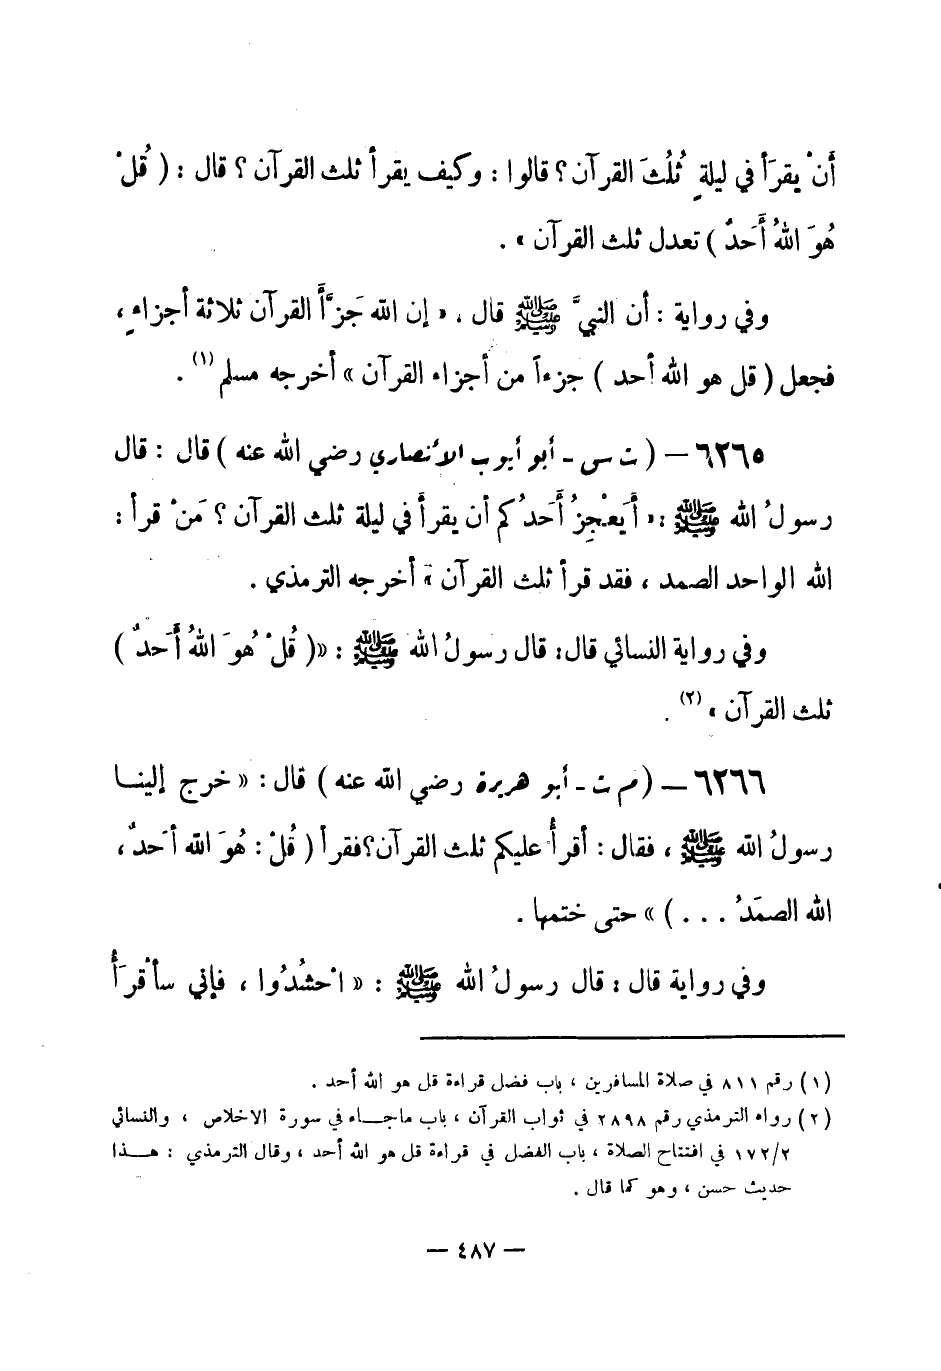 أَنْ يقرَأ في ليلةٍ ثُلُثَ القرآن ؟ قالوا : وكيف يقرأ ثلث القرآن ؟ قال : ( قُلْ
هُوَ اللهُ أَحَدٌ ) تعدل ثلث القرآن » .
وفي رواية : أن النبيَّ ﷺ قال . « إن الله جَزَّأَ القرآن ثلاثة أجزاءٍ ،
فجعل ( قل هو الله أحد ) جزءاً من أجزاء القرآن » أخرجه مسلم (١) .
٦٢٦٥ – ( ت س - أبو أيوب الأنصاري رضي الله عنه ) قال : قال
رسولُ الله ﷺ : « أَيَعْجِزُ أَحَدُكم أن يقرأَ في ليلة ثلث القرآن ؟ مَنْ قرأ :
الله الواحد الصمد ، فقد قرأ ثلث القرآن » أخرجه الترمذي .
وفي رواية النسائي قال : قال رسولُ الله ﷺ : «( قُلْ هُوَ اللهُ أَحَدٌ )
ثلث القرآن » (٢) .
٦٢٦٦ – ( م ت - أبو هريرة رضي الله عنه ) قال : « خرج إلينا
رسولُ الله ﷺ ، فقال : أقرأُ عليكم ثلث القرآن؟ فقرأ ( قُلْ : هُوَ الله أَحَدٌ ،
الله الصمَدُ . . . ) » حتى ختمها .
وفي رواية قال : قال رسولُ الله ﷺ : « احْشُدُوا ، فإني سأقْرَأُ
(١) رقم ٨١١ في صلاة المسافرين ، باب فضل قراءة قل هو الله أحد .
(٢) رواه الترمذي رقم ٢٨٩٨ في ثواب القرآن ، باب ماجاء في سورة الاخلاص ، والنسائي
١٧٢/٢ في افتتاح الصلاة ، باب الفضل في قراءة قل هو الله أحد ، وقال الترمذي : هذا
حديث حسن ، وهو كما قال .
— ٤٨٧ —